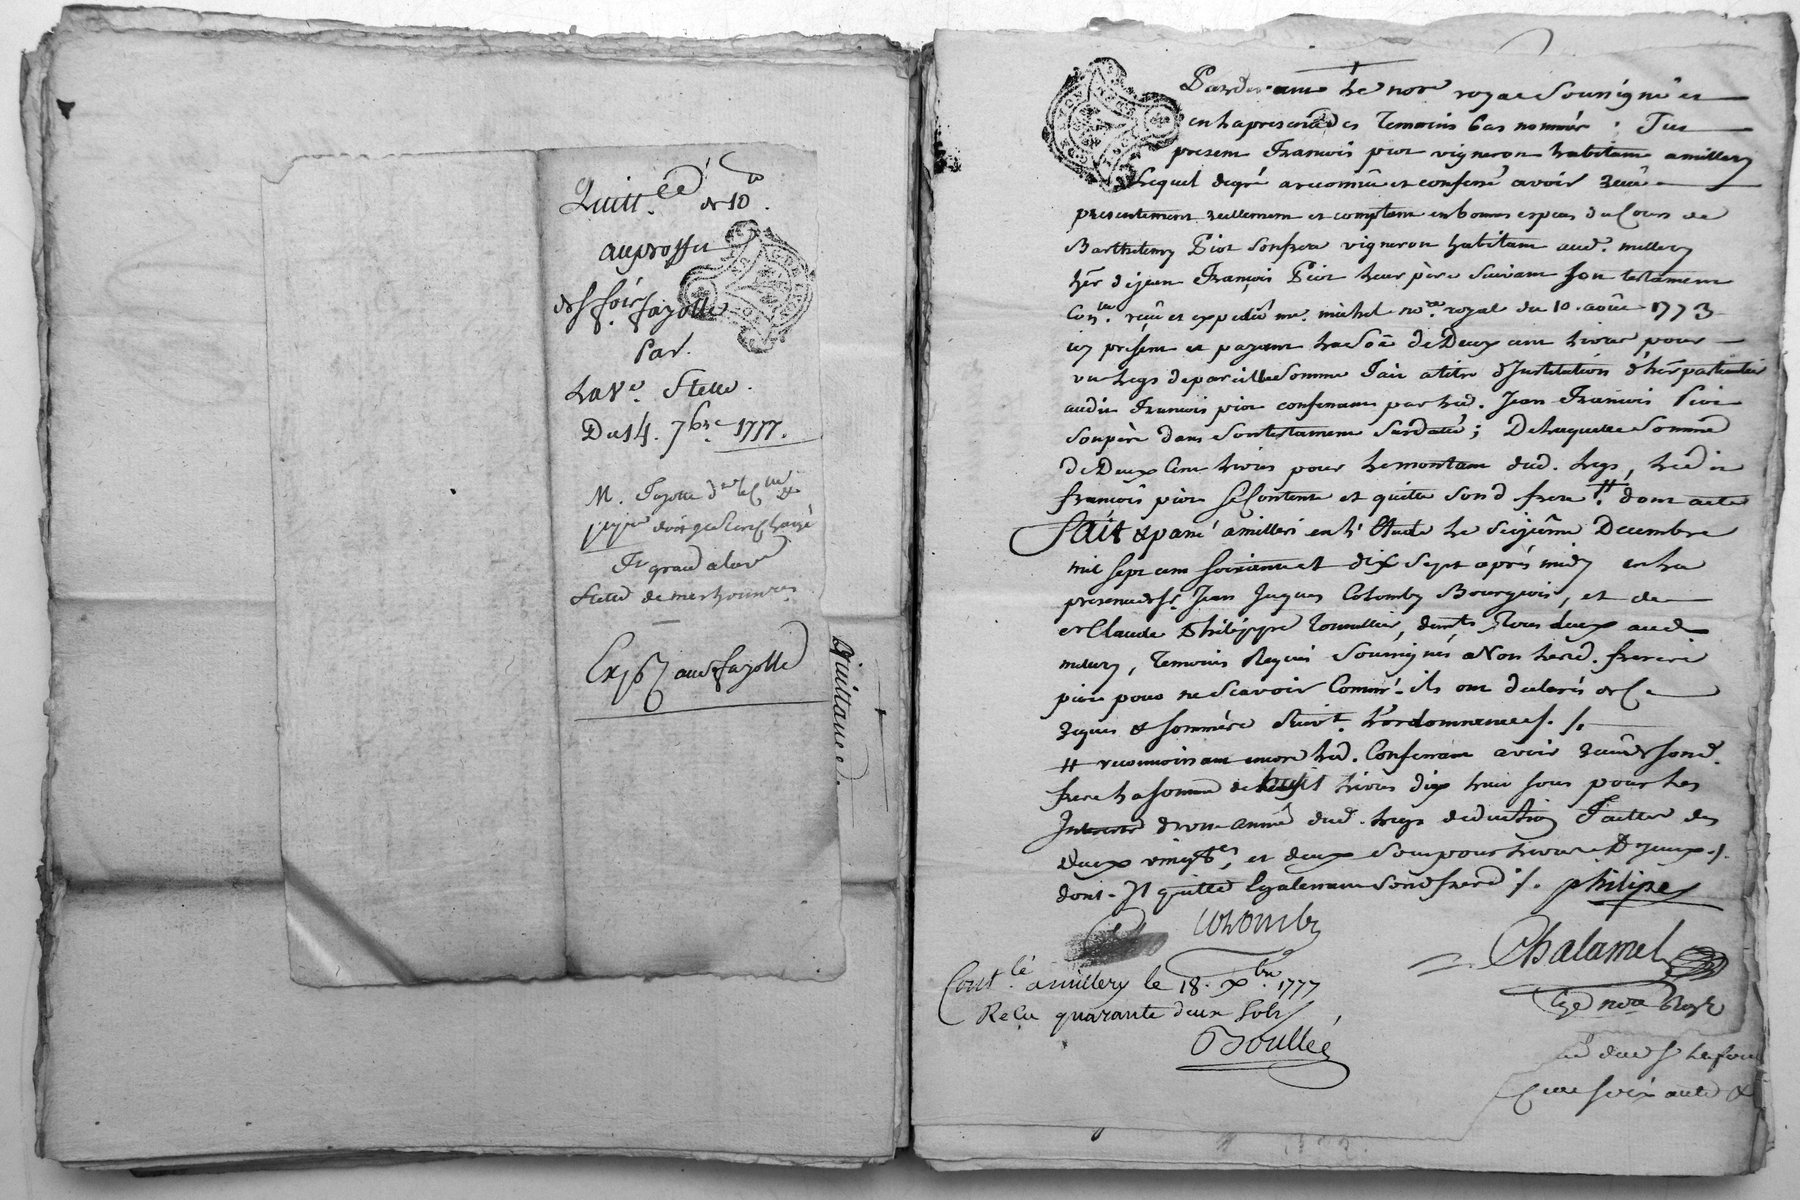 Quitt.ce de 10
au proffit
de Sr foix fayolle
Par.
La Ve. Stelle.
Du 14. 7bre 1777.
M. Fayolle
grand a la
Stelle de mes honnres
Exp au Sr fayolle
Quittance.
Pardevant le nore royal soussigné et
en la presence des temoins bas nommés : Fut
present Francois piot vigneron habitant a millery
Lequel de gré a reconnu et confessé avoir recu
presentement reellement et comptant en bonnes especes du Cours de
Barthelemy Piot son frere vigneron habitant aud. millery
her de jean Francois Piot leur père suivant son testament
recu et expedié me. michel nore royal du 10. août 1773
icy présent et payant la soe de Deux cent livres pour
un legs de pareille somme fait a titre d'Institution d'her particulier
aud. Francois piot confessant par led. Jean Francois Piot
son père dans son testament susdaté ; De laquelle somme
de Deux Cent livres pour le montant dud. legs, led.
francois piot se contente et quitte sond frere # dont acte
Fait & passé a milleri en l'Etude le seizieme Decembre
mil sept cent soixante et dix sept après midy en la
presence de Sr. Jean Jaques Colomby Bourgeois, et de
Claude Philippe Tonnellier, demts tous deux aud.
millery, temoins Requis soussignés & Non led. freres
piot pour ne scavoir Comme ils ont declarés de Ce
requis & sommés suivt. l'ordonnance ./.
# reconnoissant encore led. Confessant avoir recu de sond.
frere la somme de huit livres dix huit sous pour les
Interets d'une année dud. legs deduction faitte des
deux vingtes, et deux sou pour livre D'iceux ./.
dont Il quitte Egalement son d frere ./. philipe
Colomby
Chalamel
nore Royl
Contlé. a millery le 18. Xbre. 1777
Recu quarante deux sols
Boullée